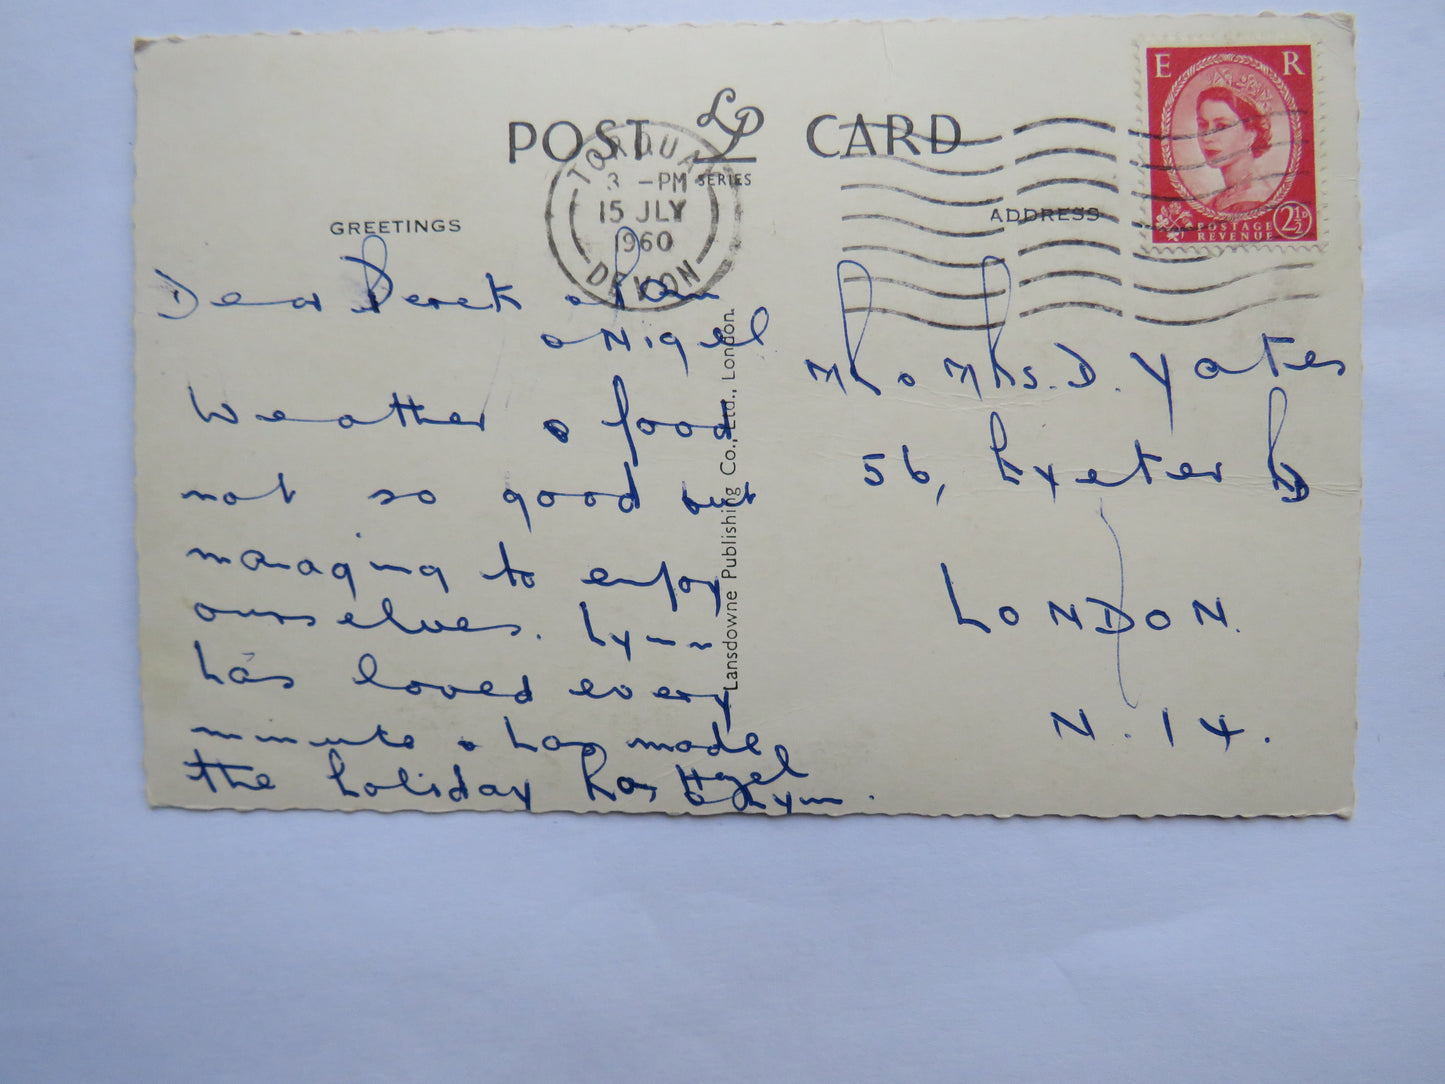 POST LP CARD
SERIES
TORQUAY
3 - PM
15 JLY
1960
DEVON
E R
POSTAGE
REVENUE
2½D
GREETINGS
ADDRESS
Dear Derek
& Nigel
Weather & food
not so good but
managing to enjoy
ourselves. Lynn
has loved every
minute & has made
the holiday
Hazel
& Lynn.
Lansdowne Publishing Co., Ltd., London.
Mr & Mrs. D. Yates
56, Exeter Rd
LONDON.
N. 14.